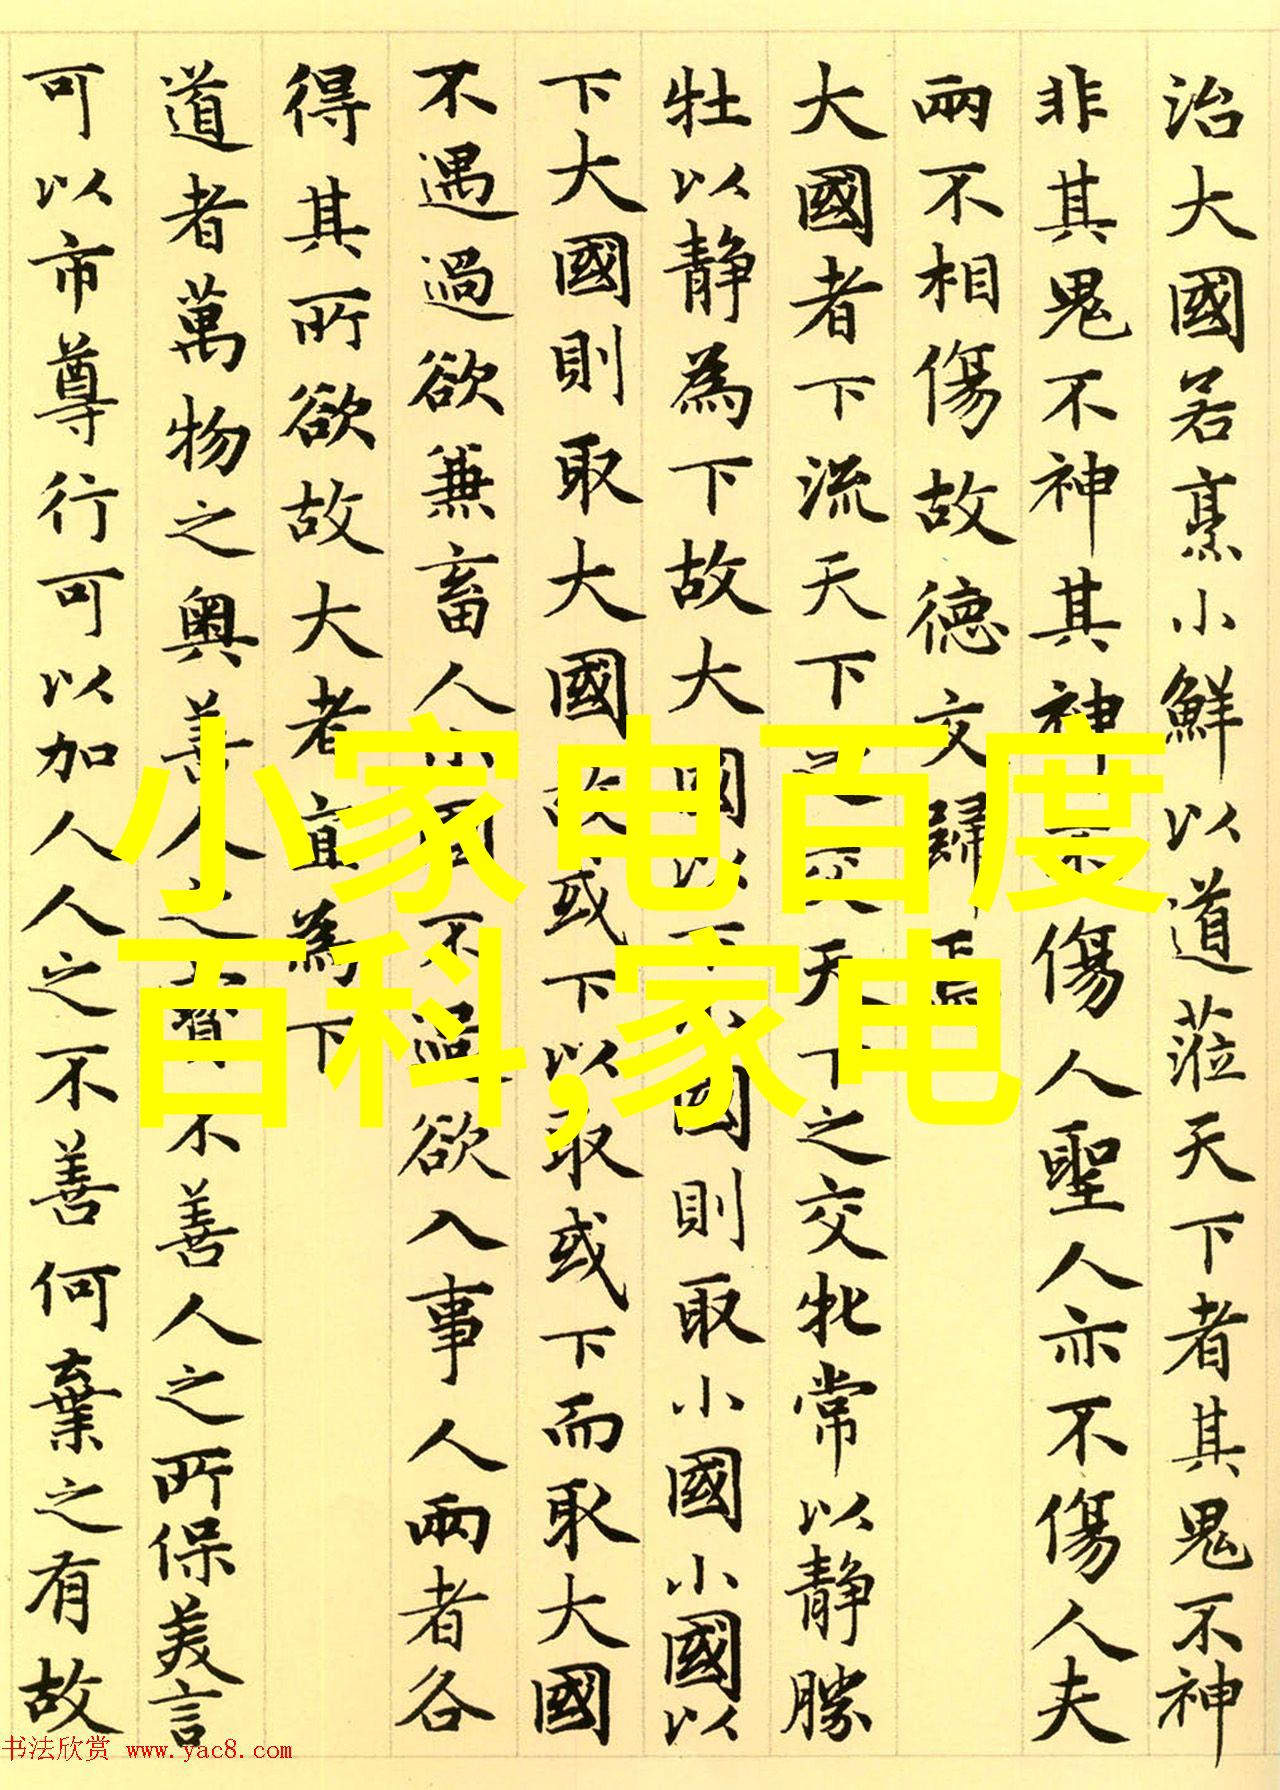 治大國若烹小鮮以道蒞天下者其鬼不神
非其鬼不神其神不傷人聖人亦不傷人夫
兩不相傷故德交歸焉
大國者下流天下之交天下之交牝常以静勝
牡以静為下故大國以下小國則取小國小國以
下大國則取大國故或下以取或下而取大國
不遇過欲兼畜人小國不過欲入事人兩者各
得其所欲故大者宜為下
道者萬物之奥善人之寶不善人之所保美言
可以市尊行可以加人人之不善何棄之有故
小家电百度
百科,家电
书法欣赏 www.yac8.com